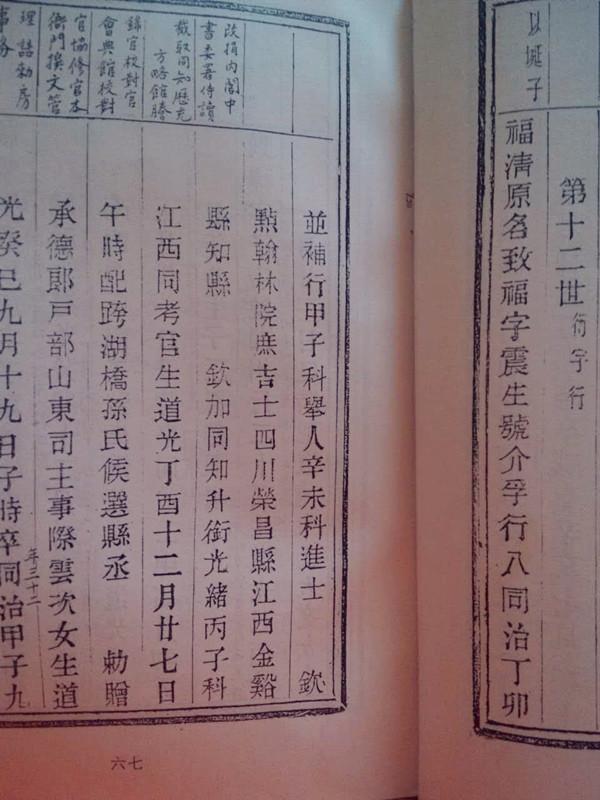 以埏子
第十二世 衍字行
福清原名致福字震生號介孚行八同治丁卯
並補行甲子科舉人辛未科進士 欽
點翰林院庶吉士四川榮昌縣江西金谿
縣知縣 欽加同知升銜光緒丙子科
江西同考官生道光丁酉十二月廿七日
午時配跨湖橋孫氏候選縣丞 勅贈
承德郎戶部山東司主事際雲次女生道
光癸巳九月十九日子時卒同治甲子九
年三十二
改捐內閣中
書委署侍讀
截取同知歷充
方略館謄
錄官校對官
會典館校對
官協修官本
衙門撰文管
理誥勅房
事務
六七